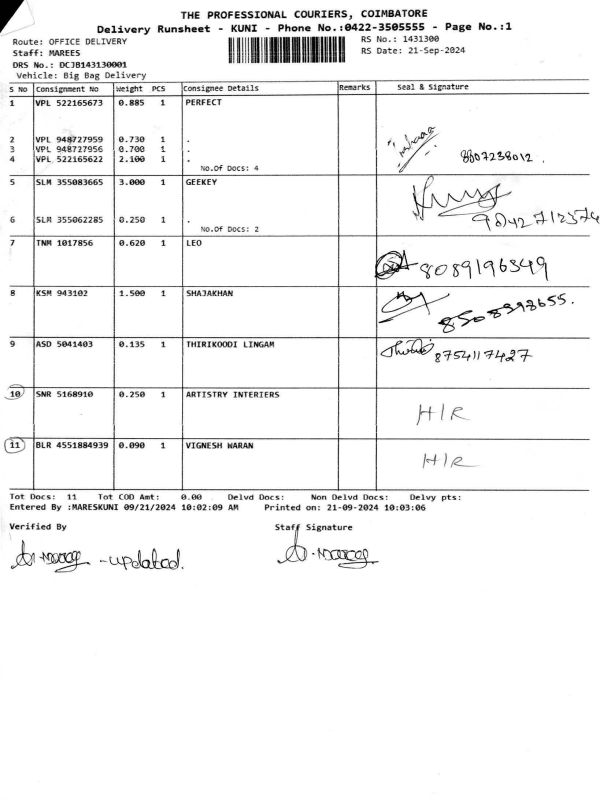 THE PROFESSIONAL COURIERS, COIMBATORE
Delivery Runsheet - KUNI - Phone No.:0422-3505555 - Page No.:1
Route: OFFICE DELIVERY RS No.: 1431300
Staff: MAREES RS Date: 21-Sep-2024
DRS No.: DCJB143130001
Vehicle: Big Bag Delivery
S No Consignment No Weight PCS Consignee Details Remarks Seal & Signature
1 VPL 522165673 0.885 1 PERFECT
2 VPL 948727959 0.730 1 .
3 VPL 948727956 0.700 1 .
4 VPL 522165622 2.100 1 . 8807238012.
No.Of Docs: 4
5 SLM 355083665 3.000 1 GEEKEY
6 SLM 355062285 0.250 1 . 9042712374
No.Of Docs: 2
7 TNM 1017856 0.620 1 LEO
8089196349
8 KSM 943102 1.500 1 SHAJAKHAN
8508398655.
9 ASD 5041403 0.135 1 THIRIKOODI LINGAM
8754117427
10 SNR 5168910 0.250 1 ARTISTRY INTERIERS
H/R
11 BLR 4551884939 0.090 1 VIGNESH WARAN
H/R
Tot Docs: 11 Tot COD Amt: 0.00 Delvd Docs: Non Delvd Docs: Delvy pts:
Entered By :MARESKUNI 09/21/2024 10:02:09 AM Printed on: 21-09-2024 10:03:06
Verified By Staff Signature
-updated.